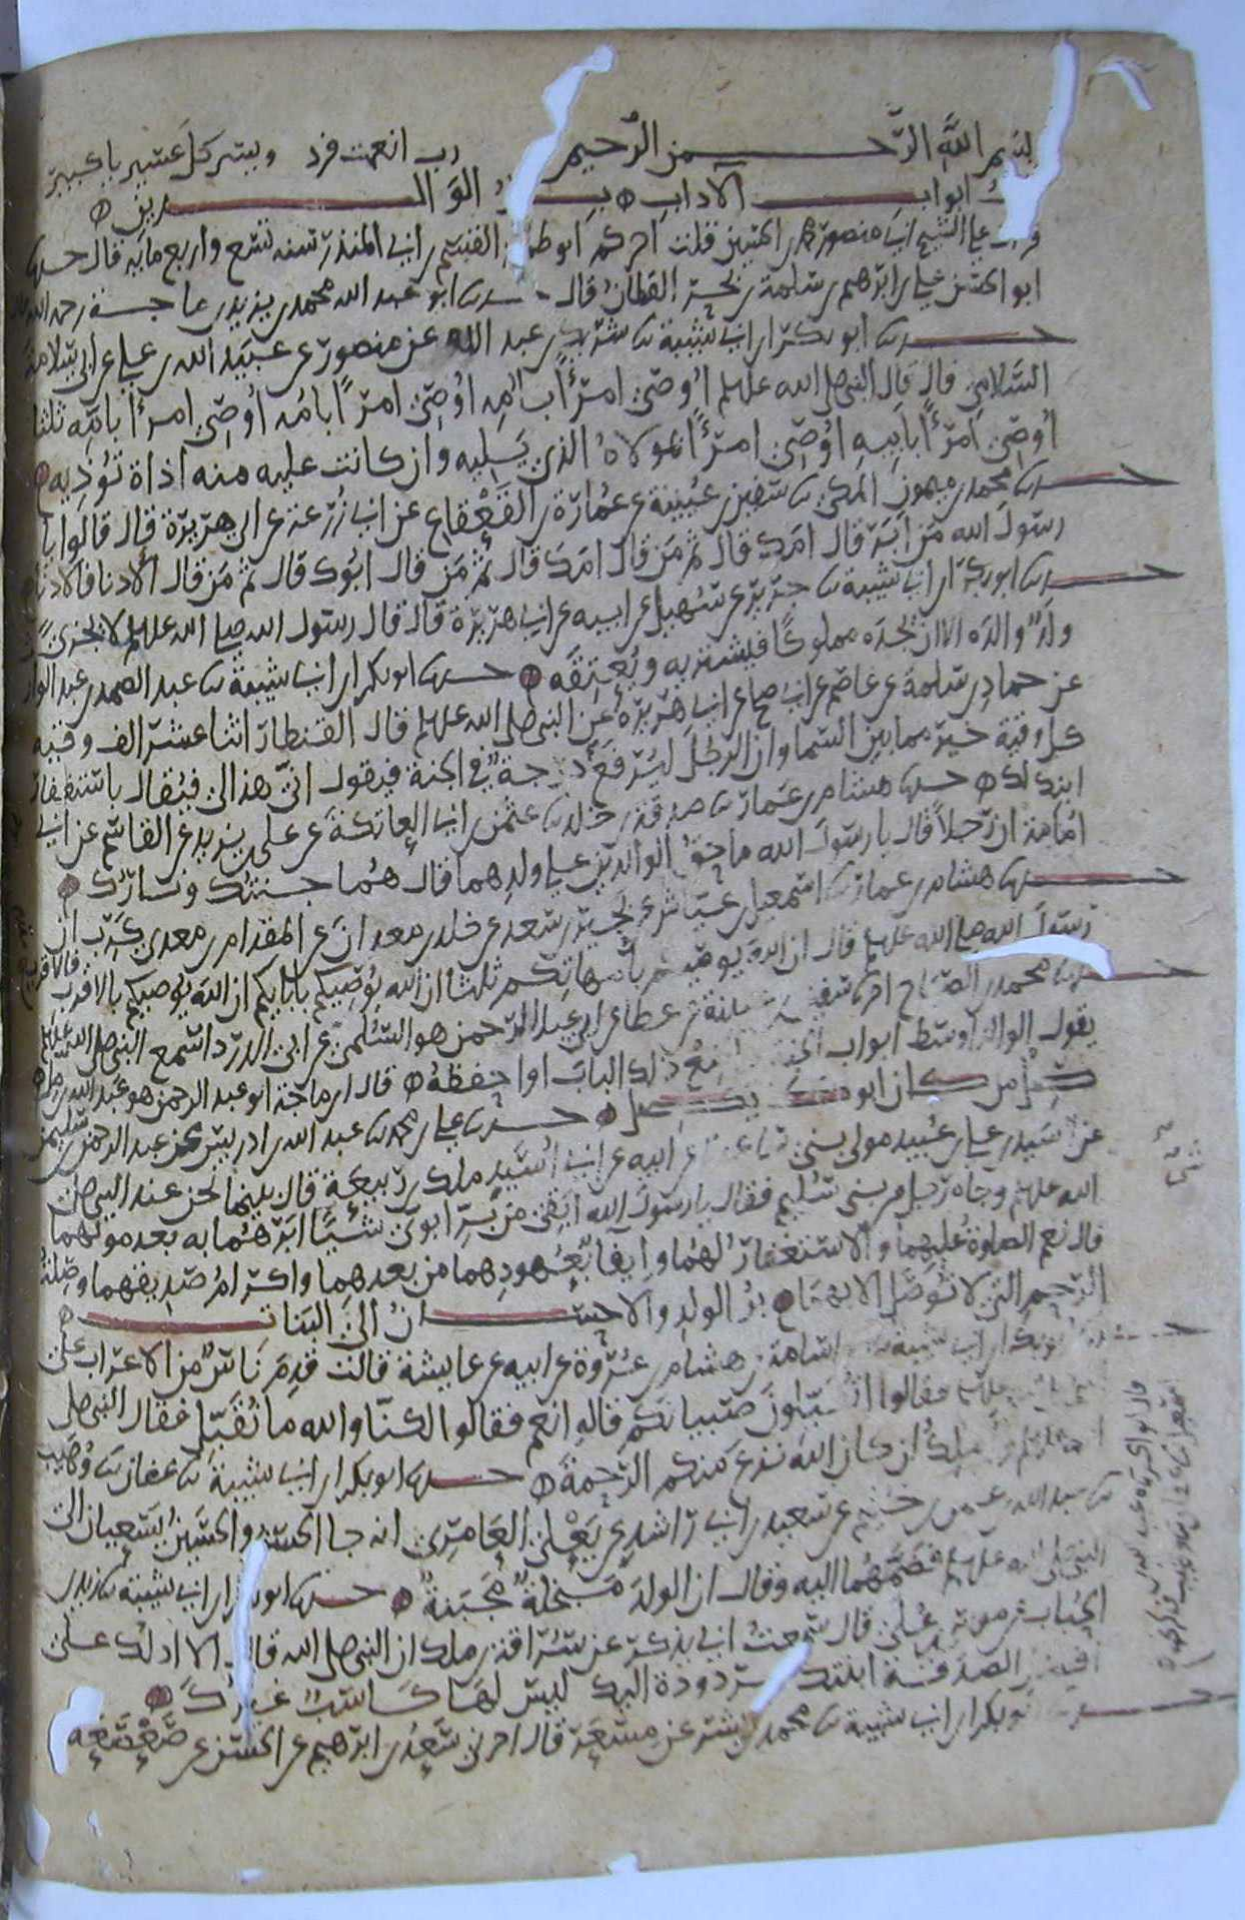 بسم الله الرحمن الرحيم رب انعمت فزد ويسر كل عسير يا كبير
ابواب الاداب بر الوالدين
على الشيخ ابي منصور محمد بن الحسين قلت اخبركم ابو طلحة القسم بن ابي المنذر سنه تسع واربع مايه قال حدثنا
ابو الحسن علي بن ابرهيم بن سلمة بن بحر القطان قال حدثنا ابو عبد الله محمد بن يزيد بن ماجة رحمه الله
حدثنا ابو بكر بن ابي شيبة نا شريك بن عبد الله عن منصور عن عبيد الله بن علي عن ابن سلامة
السلامي قال قال النبي صلى الله عليه وسلم اوصي امرءًا بامه اوصي امرءًا بامه اوصي امرءًا بامه ثلثا
اوصي امرءًا بابيه اوصي امرءًا بمولاه الذي يليه وان كانت عليه منه اذاة تؤذيه
حدثنا محمد بن ميمون المكي نا سفين بن عيينة عن عمارة بن القعقاع عن ابي زرعة عن ابي هريرة قال قالوا يا
رسول الله من ابر قال امك قال ثم من قال امك قال ثم من قال ابوك قال ثم من قال الادنا فالادنا
حدثنا ابو بكر بن ابي شيبة نا جرير عن سهيل عن ابيه عن ابي هريرة قال قال رسول الله صلى الله عليه وسلم لا يجزي
ولد والده الا ان يجده مملوكا فيشتريه ويعتقه حدثنا ابو بكر بن ابي شيبة نا عبد الصمد بن عبد الوارث
عن حماد بن سلمة عن عاصم عن ابي صالح عن ابي هريرة عن النبي صلى الله عليه وسلم قال القنطار اثنا عشر الف وقيه
كل وقية خير مما بين السما وان الرجل ليرفع درجة في الجنة فيقول انى هذا لي فيقال باستغفار
ابنك لك حدثنا هشام بن عمار نا صدقة بن خلد نا عثمن بن ابي العاتكة عن علي بن يزيد عن القاسم عن ابي
امامة ان رجلا قال يا رسول الله ما حق الوالدين على ولدهما قال هما جنتك ونارك
حدثنا هشام بن عمار نا اسمعيل بن عياش عن بحير بن سعد عن خلد بن معدان عن المقدام بن معدي كرب ان
رسول الله صلى الله عليه وسلم قال ان الله يوصيكم بامهاتكم ثلثا ان الله يوصيكم بابايكم ان الله يوصيكم بالاقرب فالاقرب
حدثنا محمد بن الصباح اخبرنا سفين بن عيينة عن عطا عن ابي عبد الرحمن هو السلمي عن ابي الدردا سمع النبي صلى الله عليه وسلم
يقول الوالد اوسط ابواب الجنة ذلك الباب او احفظه قال ابن ماجة ابو عبد الرحمن هو عبد الله
حدثنا علي بن محمد نا عبد الله بن ادريس عن عبد الرحمن بن سليمن
عن اسيد بن علي بن عبيد مولى بني ساعدة عن ابيه عن ابي اسيد ملك بن ربيعة قال بينما نحن عند النبي صلى
الله عليه وسلم وجاه رجل من بني سليم فقال يا رسول الله ابقي من بر ابوي شيئًا ابرهما به بعد موتهما
قال نعم الصلوة عليهما والاستغفار لهما وايفا بعهودهما من بعدهما واكرام صديقهما وصلة
الرحم التي لا توصل الا بهما بر الولد والاحسان الى البنات
ابو بكر بن ابي شيبة اسامة عن هشام بن عروة عن ابيه عن عايشة قالت قدم ناس من الاعراب على
فقالوا اتقبلون صبيانكم قالوا نعم فقالوا لكنا والله ما نقبل فقال النبي صلى
املك ان كان الله نزع منكم الرحمة حدثنا ابو بكر بن ابي شيبة نا عفان نا وهيب
نا عبد الله بن عثمن بن خثيم عن سعيد بن ابي راشد عن يعلى العامري انه جا الحسن والحسين يسعيان الى
النبي صلى الله عليه وسلم فضمهما اليه وقال ان الولد مبخلة مجبنة حدثنا ابو بكر بن ابي شيبة نا زيد بن
الحباب عن موسى بن علي قال سمعت ابي يذكر عن سراقة بن ملك ان النبي صلى الله قال الا ادلك على
الصدقة ابنتك مردودة اليك ليس لها كاسب غيرك
ابو بكر بن ابي شيبة نا محمد بن بشر عن مسعر قال اخبرني سعد بن ابرهيم عن الحسن عن صعصعه